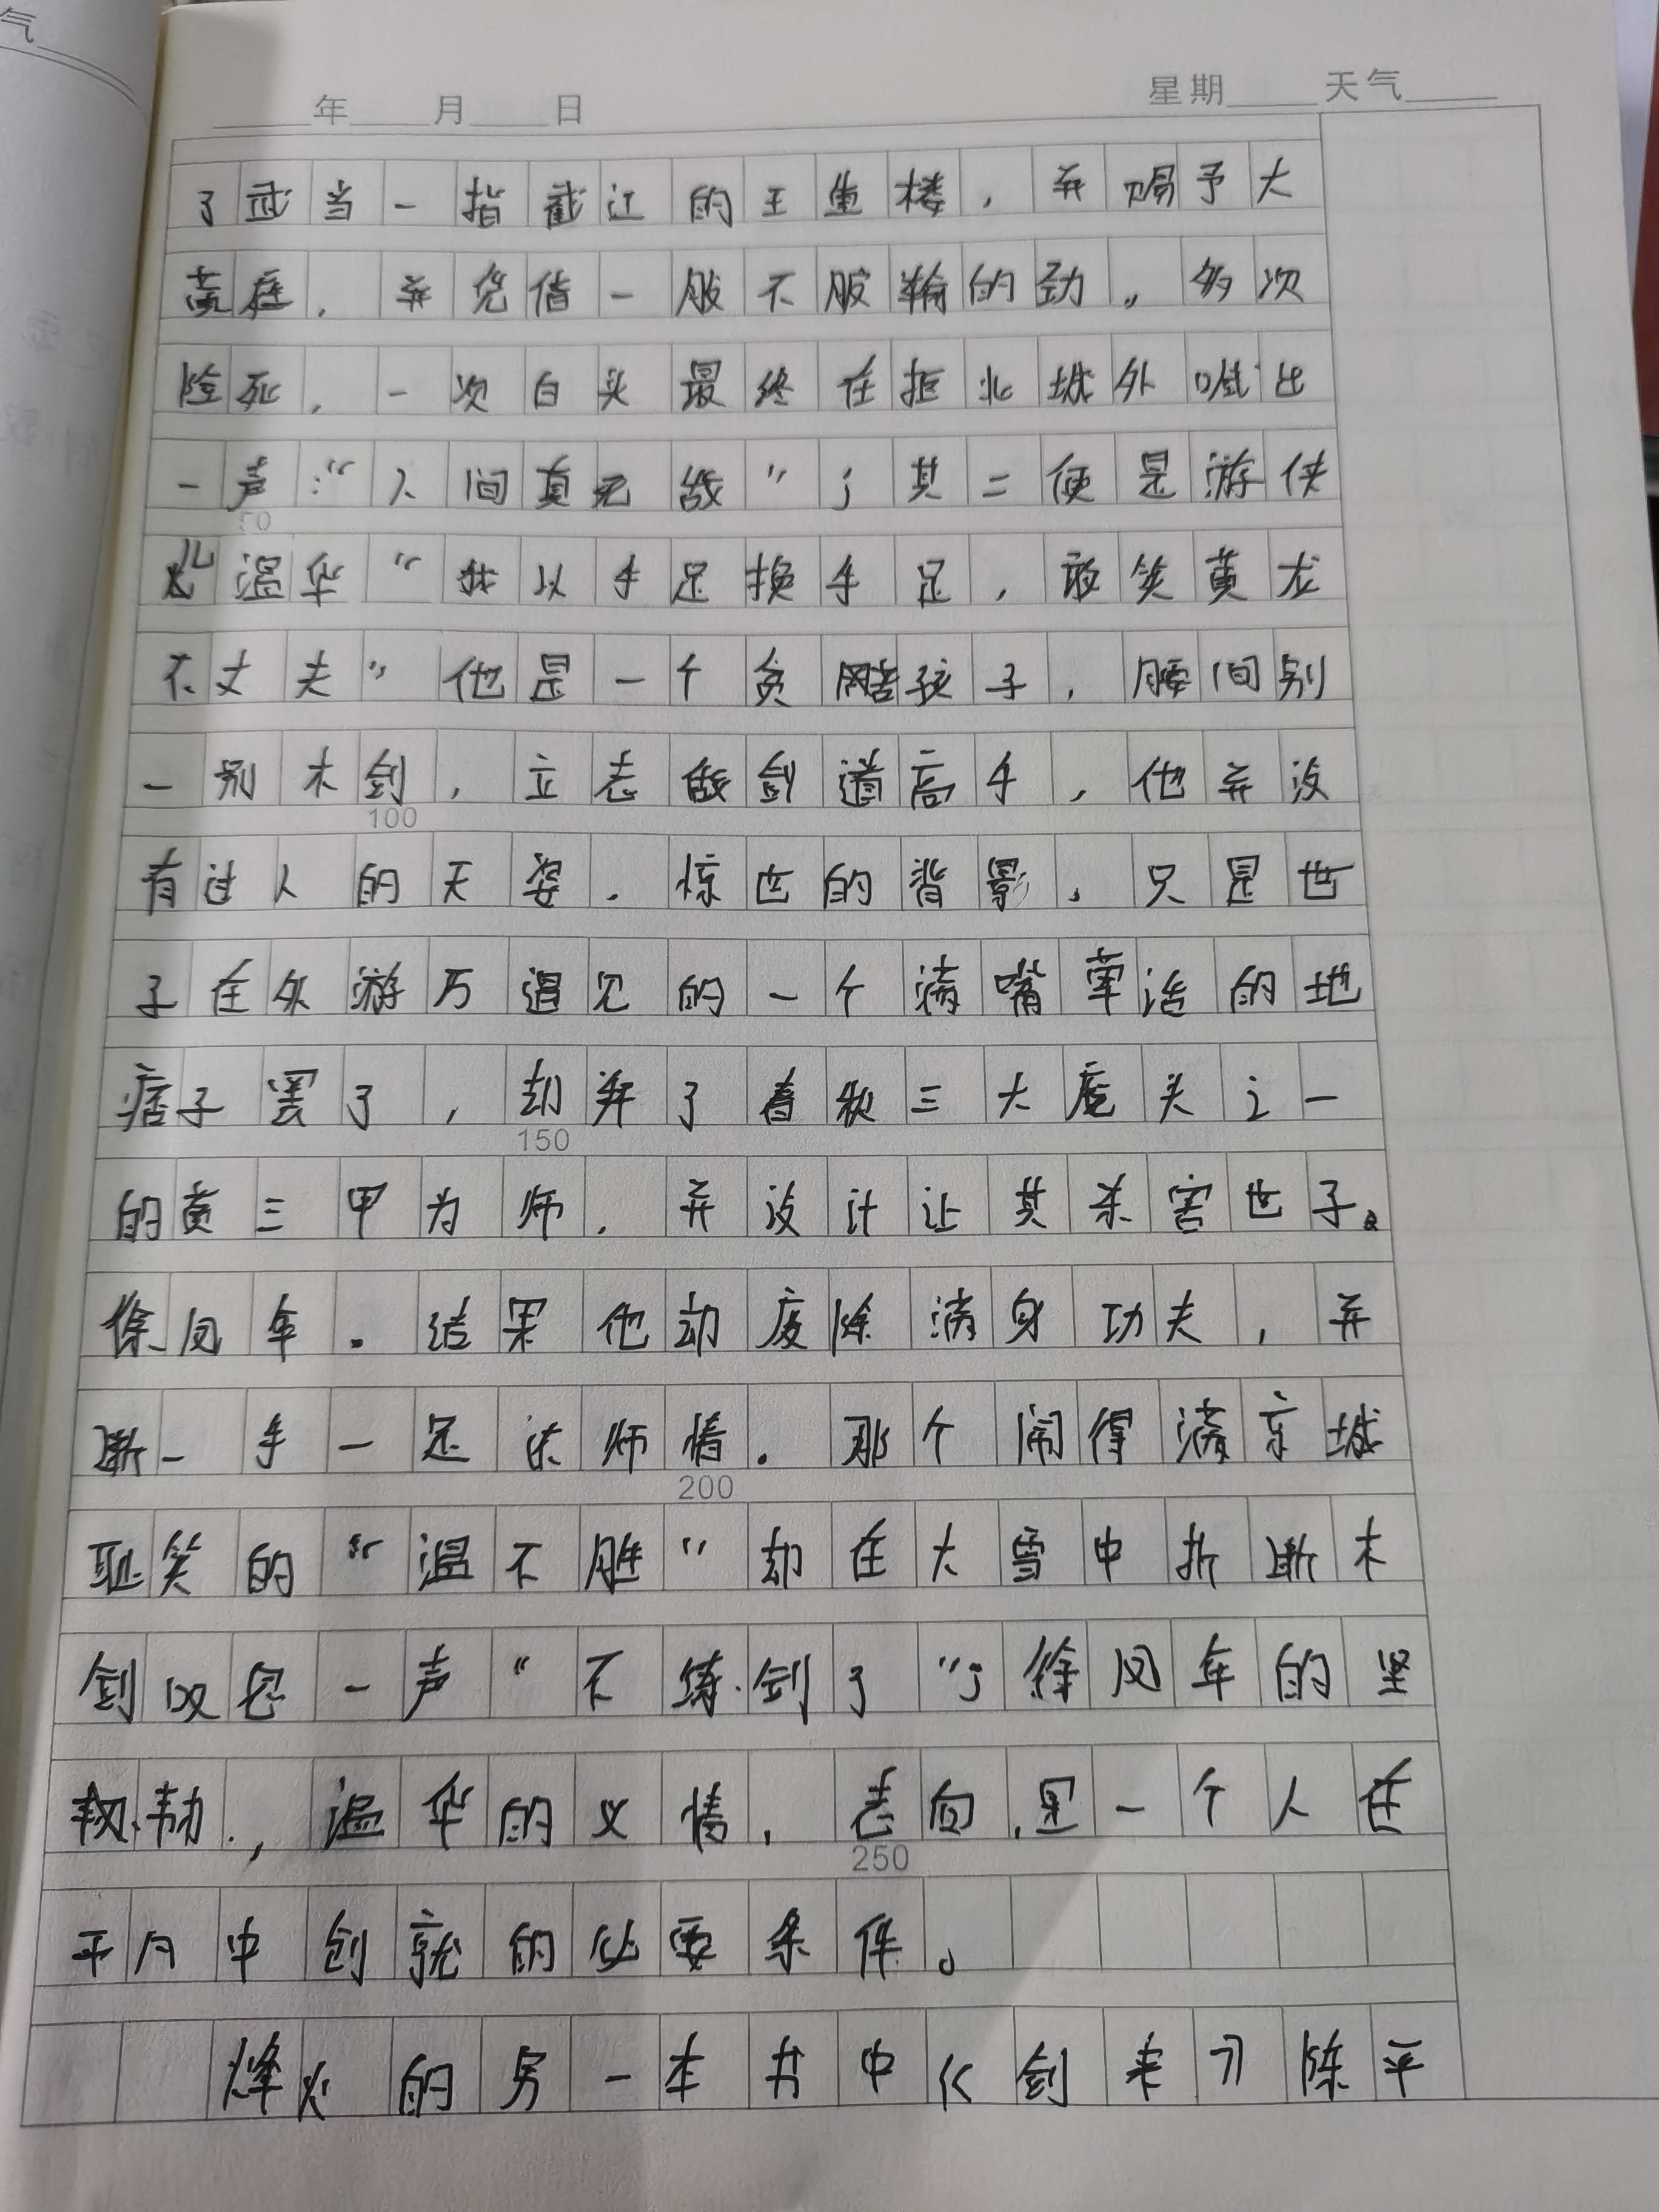 气
年 月 日 星期 天气
了武当一指截江的王重楼，并赐予大
黄庭，并凭借一股不服输的劲，多次
险死，一次白头最终在拒北城外喊出
一声：“人间真无敌”；其二便是游侠
儿温华“我以手足换手足，敢笑黄龙
不丈夫”他是一个贫酷孩子，腰间别
一别木剑，立志做剑道高手，他并没
有过人的天姿，惊世的背影，只是世
子在外游历遇见的一个满嘴荤话的地
痞子罢了，却拜了春秋三大魔头之一
的黄三甲为师，并设计让其杀害世子
徐凤年。结果他却废除满身功夫，并
断一手一足还师情。那个闹得满京城
耻笑的“温不胜”却在大雪中折断木
剑以及一声“不练剑了”；徐凤年的坚
韧，温华的义情，志向，是一个人在
平凡中创就的必要条件。
烽火的另一本书中《剑来》陈平
50
100
150
200
250